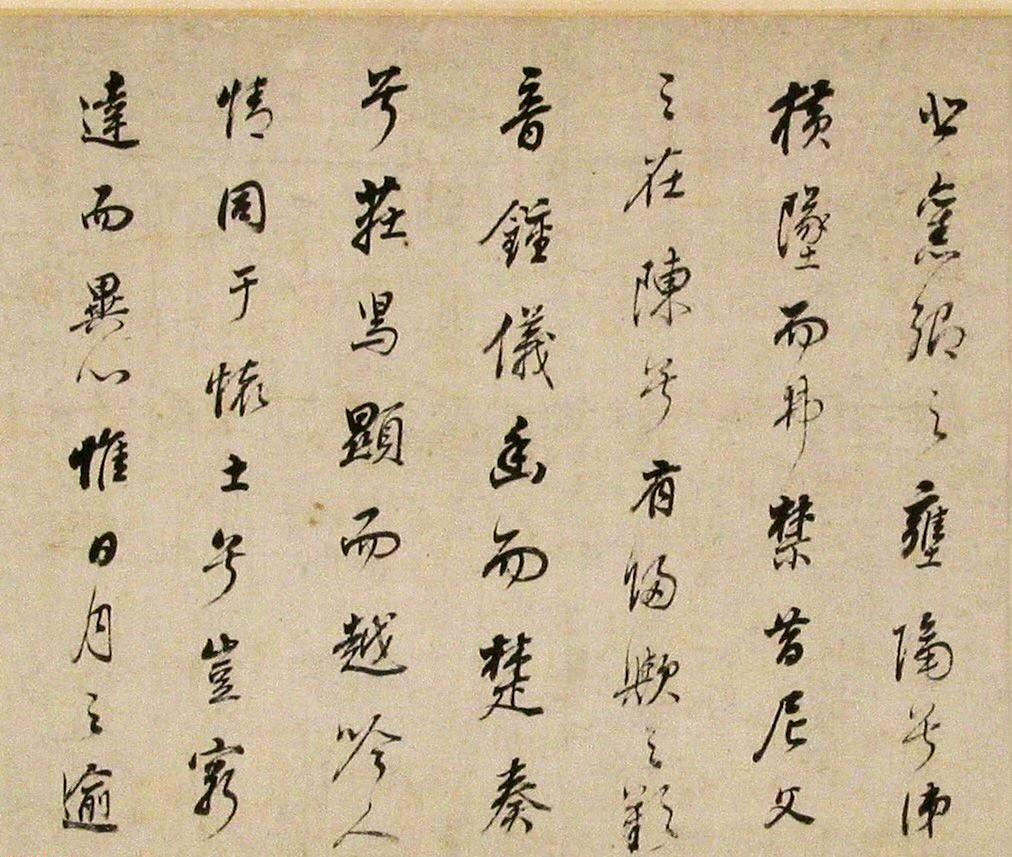 悲舊鄉之壅隔兮涕
橫墜而弗禁昔尼父
之在陳兮有歸歟之歎
音鍾儀幽而楚奏
兮莊舄顯而越吟人
情同于懷土兮豈窮
達而異心惟日月之逾